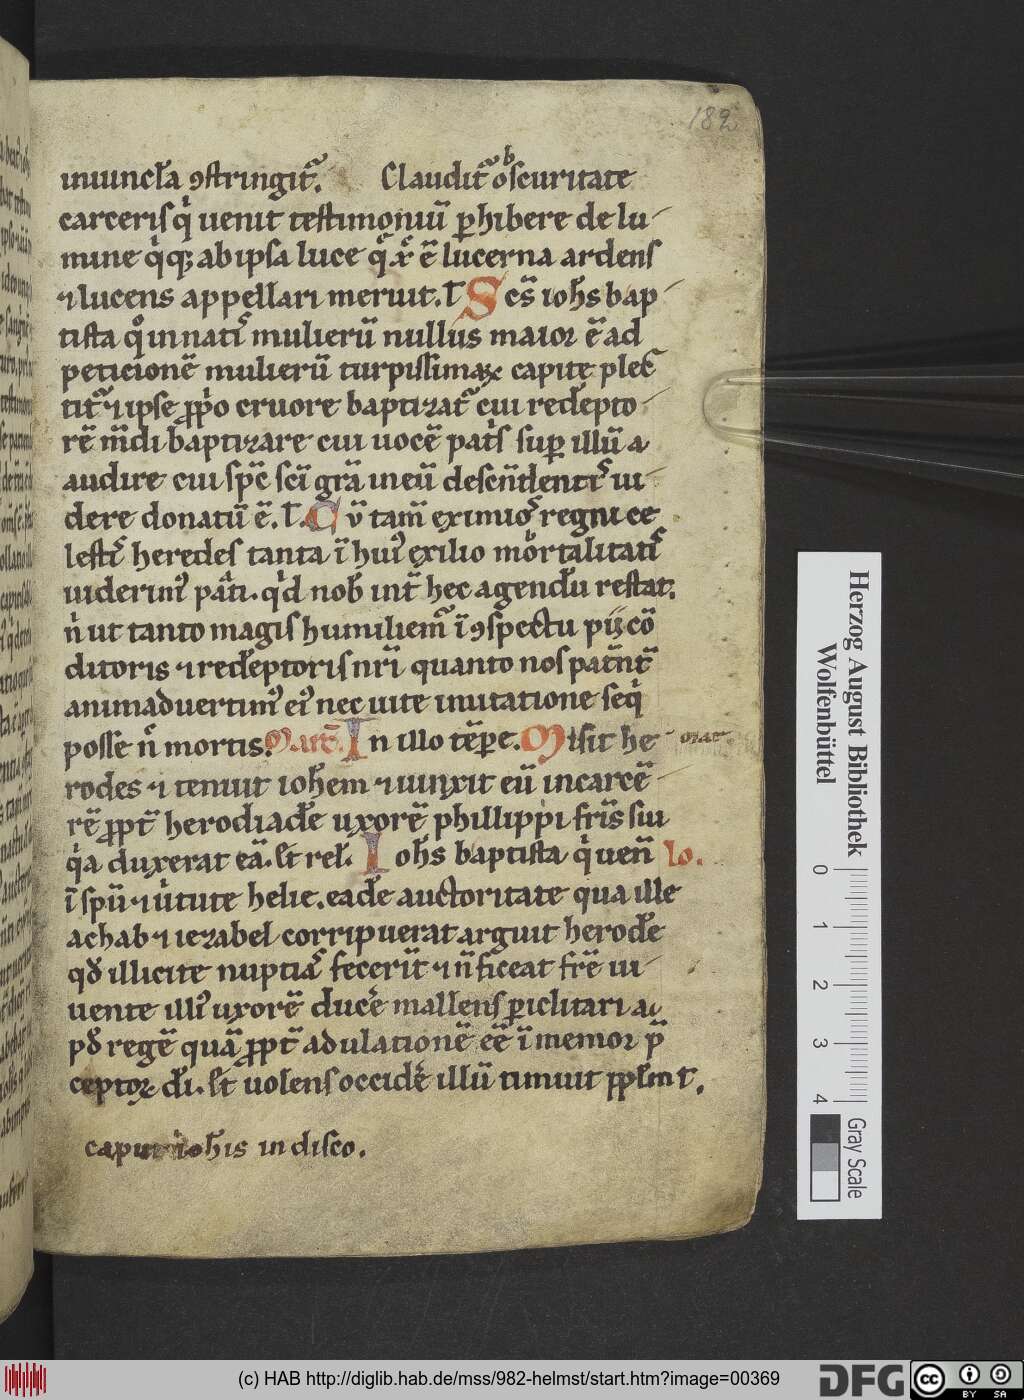 182
iniuncta ꝯstringit᷑. Claudit᷑ obscuritate
carceris qͥ uenit testimoniū ꝑhibere de lu
mine qͥqꝫ ab ipsa luce q̊ xp̄c ē lucerna ardens
⁊ lucens appellari meruit. t Scs̄ iohs bap
tista q̊ in natis mulierū nullus maior ē ad
peticionē mulierū turpissimaꝝ capite plec
tit᷑ ⁊ ipse ꝓpͥo cruore baptizat᷑ cui redēpto
rē mūdi baptizare cui uocē pat̄s suꝑ illū a
audire cui spc̄ sci grā in eū descendentis ui
dere donatū ē. t. Cū tam̄ eximios regni ce
lestis heredes tanta ī huiꝰ exilio mortalitatis
uiderimꝰ pati. qͥd nob̄ int̄ hec agendū restat.
n̄ ut tanto magis humiliem᷑ ī ꝯspectu pij cō
ditoris ⁊ redēptoris nr̄i quanto nos patn̄t
animaduertimꝰ eiꝰ nec uite imitatione seqͥ
posse n̄ mortis. Marc̄. In illo tēꝑe. Misit he
marc̄.
rodes ⁊ tenuit iohem ⁊ uinxit eū in carcē
rē ꝓpt̄ herodiadē uxorē phillippi fr̄is sui
qͥa duxerat eā. Et rel̄. Iohs baptista qͥ uen̄ Io.
ī spū ⁊ uͥtute helie. eadē auctoritate qua ille
achab ⁊ iezabel corripuerat arguit herodē
qd̄ illicite nuptias fecerit ⁊ n̄ liceat fr̄e ui
uente illiꝰ uxorē ducere mallens ꝑiclitari a
pd̄ regē quā ꝓpt̄ adulationē eē īmemor p̄
ceptoꝝ di. Et uolens occidē illū timuit ppl̄m t.
caput iohis in disco.
Herzog August Bibliothek
Wolfenbüttel
0 1 2 3 4
Gray Scale
(c) HAB http://diglib.hab.de/mss/982-helmst/start.htm?image=00369
DFG
cc BY SA